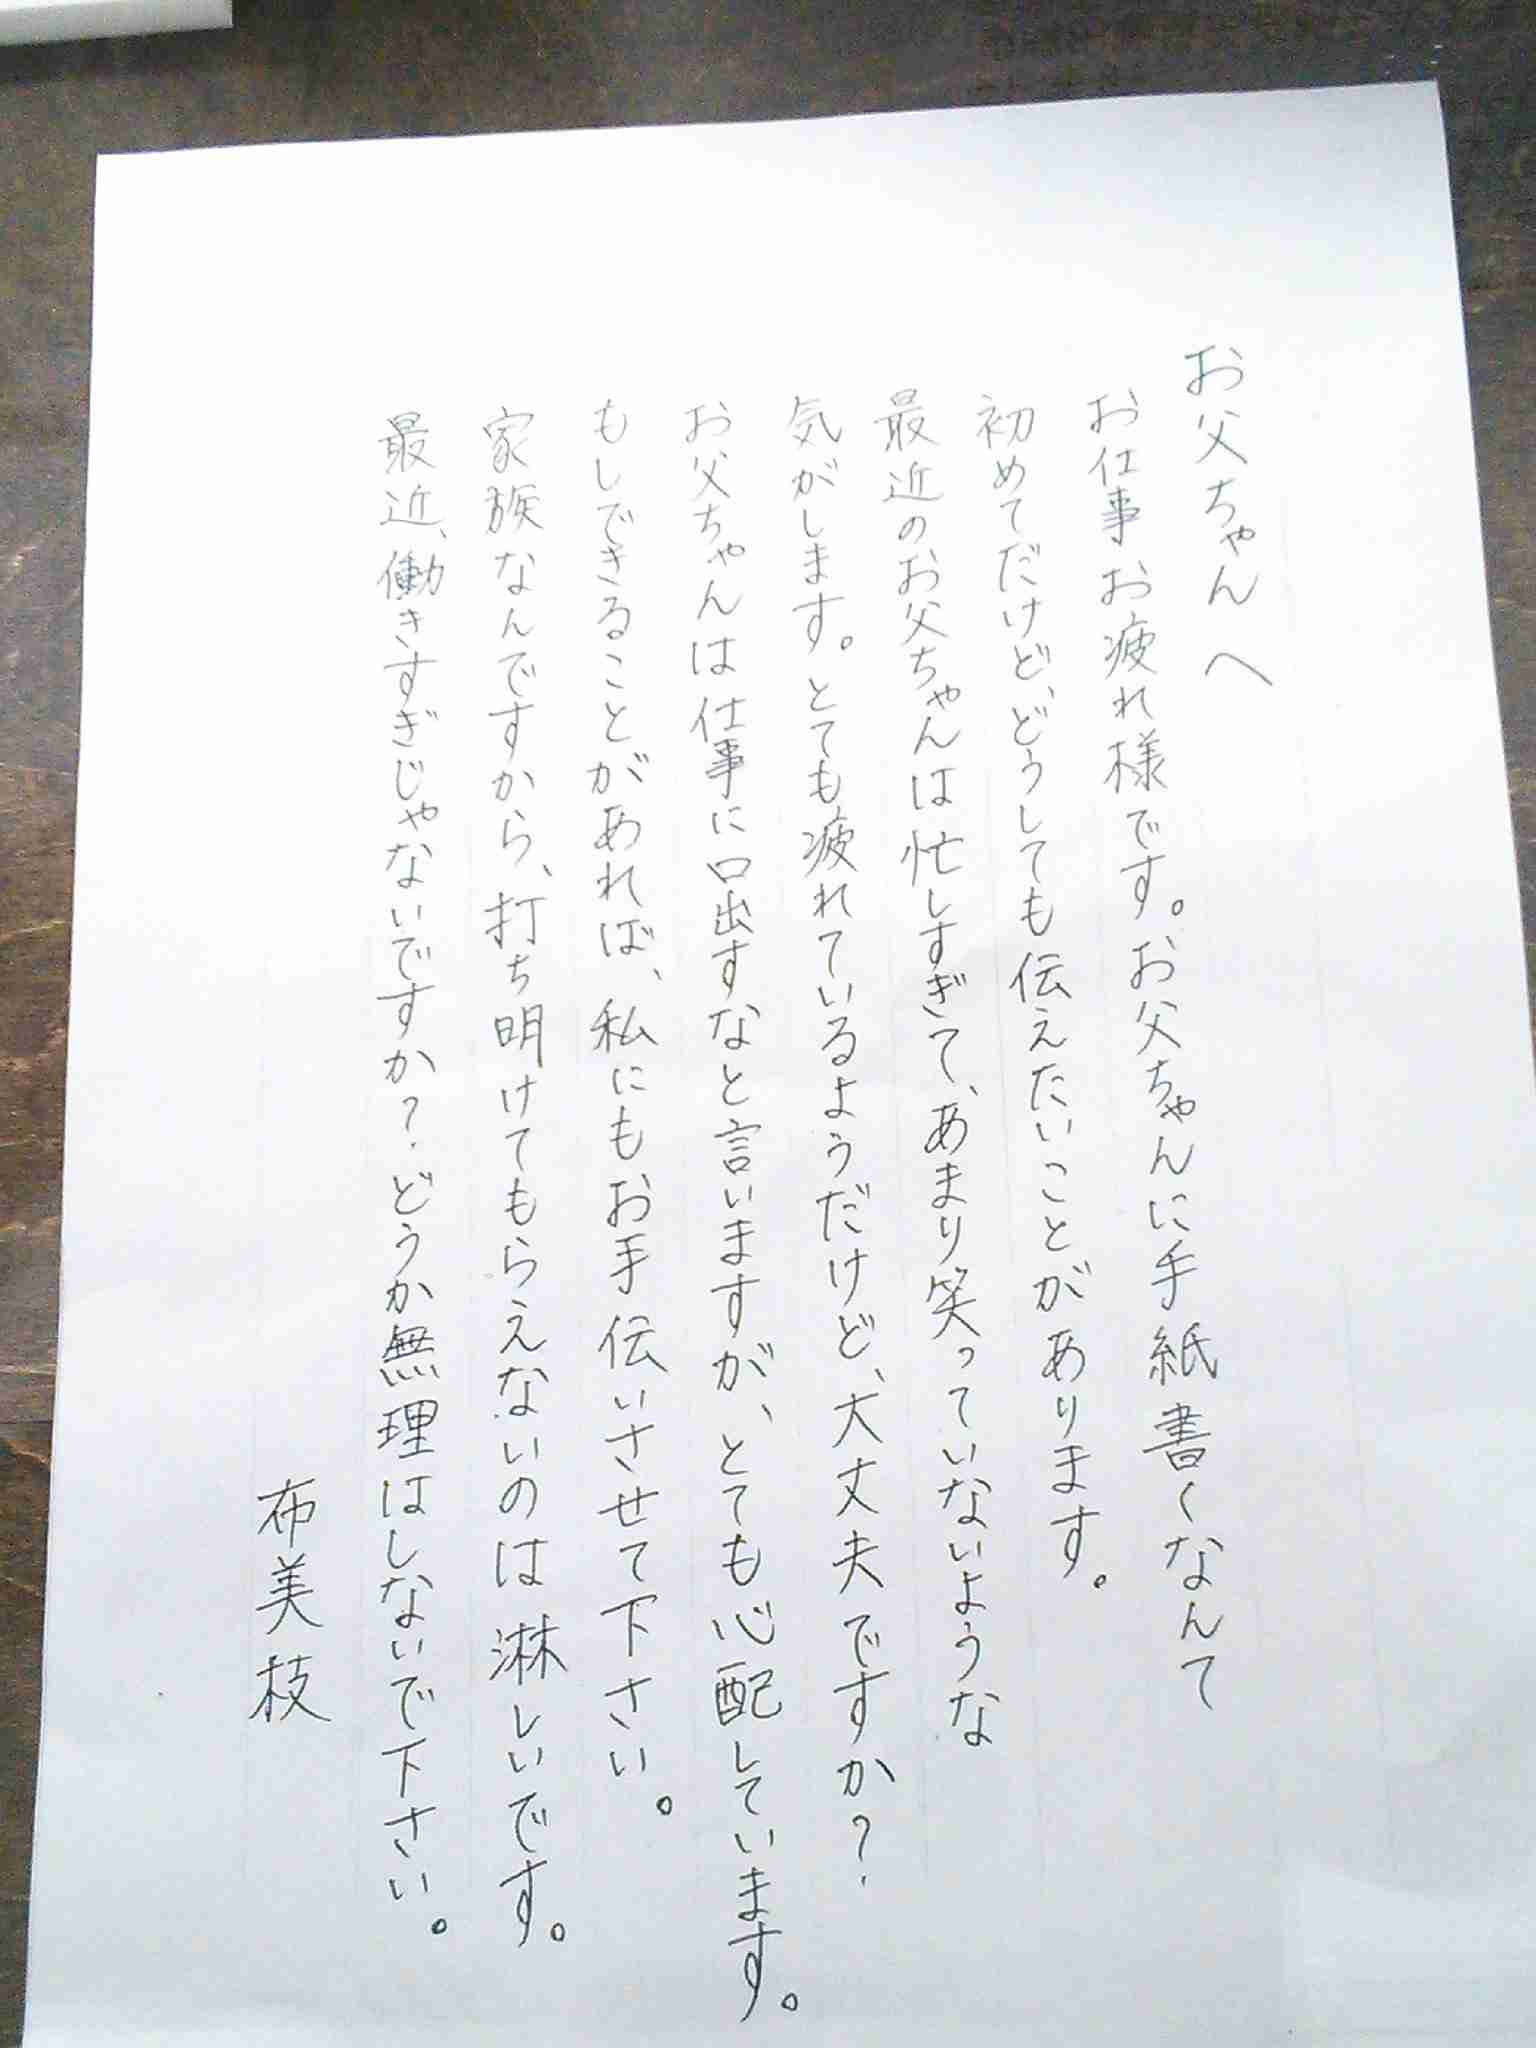 お父ちゃんへ
お仕事お疲れ様です。お父ちゃんに手紙書くなんて
初めてだけど、どうしても伝えたいことがあります。
最近のお父ちゃんは忙しすぎて、あまり笑っていないような
気がします。とても疲れているようだけど、大丈夫ですか?
お父ちゃんは仕事に口出すなと言いますが、とても心配しています。
もしできることがあれば、私にもお手伝いさせて下さい。
家族なんですから、打ち明けてもらえないのは淋しいです。
最近、働きすぎじゃないですか?どうか無理はしないで下さい。
布美枝